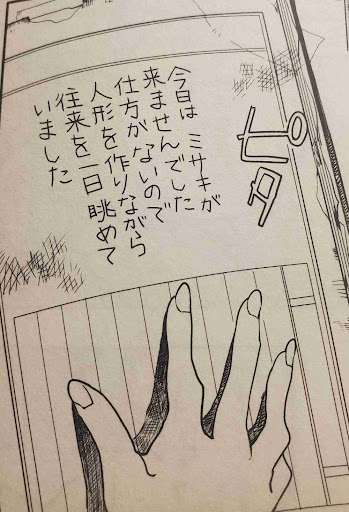 ピタ
今日は ミサキが
来ませんでした
仕方がないので
人形を作りながら
往来を一日眺めて
いました